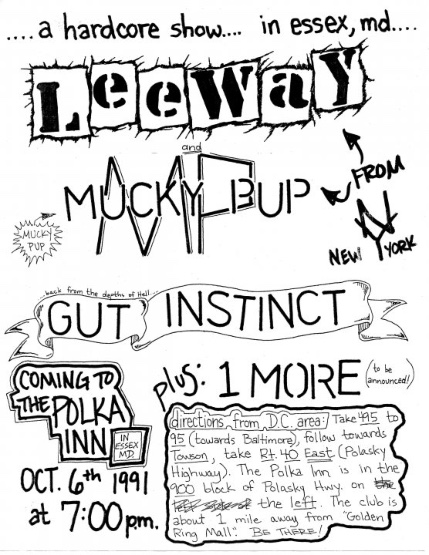 ....a hardcore show.... in essex, md....
LeeWaY
and
MUCKY PUP
MP
MUCKY
PUP
FROM
NEW YORK
back from the depths of Hell...
GUT INSTINCT
COMING TO
THE POLKA
INN
IN
ESSEX
MD.
OCT. 6th 1991
at 7:00 p.m.
plus: 1 MORE (to be announced!)
directions from D.C. area: Take 495 to
95 (towards Baltimore), follow towards
Towson, take Rt. 40 East (Polasky
Highway). The Polka Inn is in the
900 block of Polasky Hwy. on
the left. The club is
about 1 mile away from "Golden
Ring Mall". BE THERE!